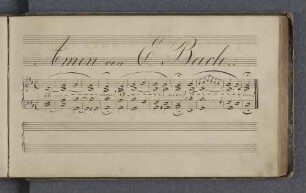 Amen von E. Bach.